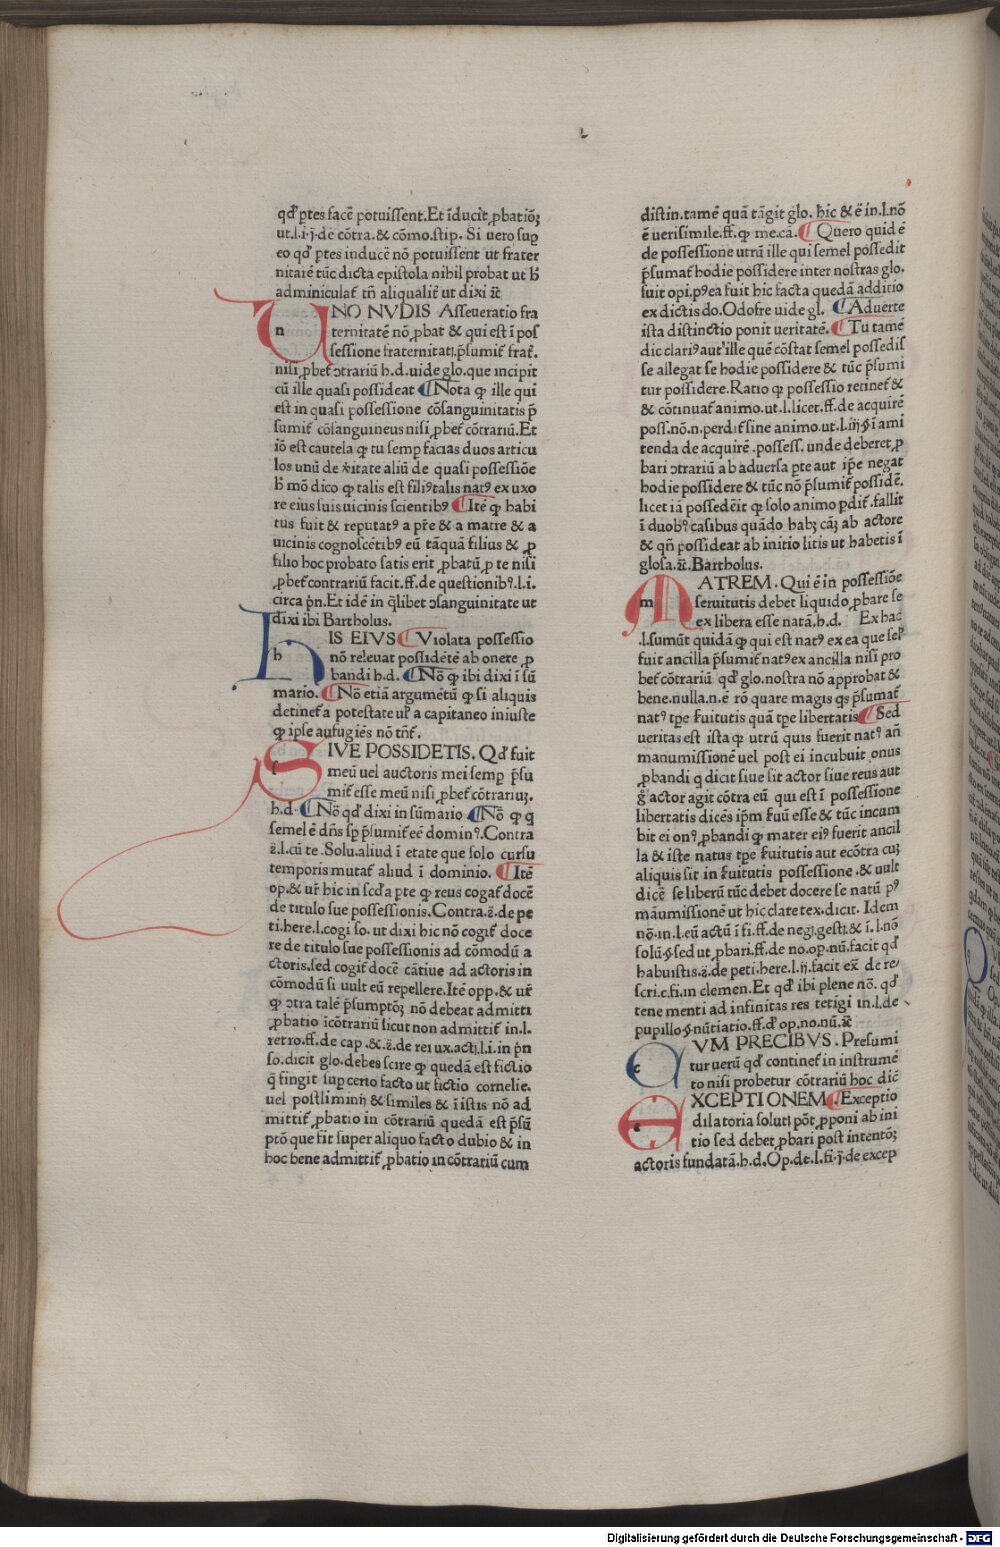 qď ꝑtes facē potuissent.Et īducit̄ ꝓbatiōꝫ
ut.l.i.j.de cōtra.& cōmo.stip. Si uero suꝑ
eo qď ꝑtes inducē nō potuissent ut frater
nitatē tūc dicta epistola nihil probat ut h̄
adminiculat̄ tn̄ aliqualit̄ ut dixi ⁊c̄
NO NVDIS Asseueratio fra
ternitatē nō ꝓbat & qui est ī pos
sessione fraternitatꝭ p̄sumit̄ frat̄.
nisi ꝓbet̄ ↄtrariū h.d.uide glo.que incipit
cū ille quasi possideat ¶Nota ꝙ ille qui
est in quasi possessione cōsanguinitatis p̄
sumit̄ cōsanguineus nisi ꝓbet̄ cōtrariū.Et
iō est cautela ꝙ tu semꝑ facias duos articu
los unū de v̄itate aliū de quasi possessiōe
h̄ mō dico ꝙ talis est filiꝰtalis natꝰ ex uxo
re eius suis uicinis scientibꝰ ¶Itē ꝙ habi
tus fuit & reputatꝰ a pr̄e & a matre & a
uicinis cognoscētibꝰ eū tāquā filius & ꝓ
filio hoc probato satis erit ꝓbatū ꝑ te nisi
ꝓbet̄ contrariū facit.ff.de questionibꝰ.l.i.
circa p̄n.Et idē in q̄libet ↄsanguinitate ut
dixi ibi Bartholus.
IS EIVS ¶Violata possessio
nō releuat possidētē ab onere ꝓ
bandi h.d. ¶Nō ꝙ ibi dixi ī sū
mario. ¶Nō etiā argumētū ꝙ si aliquis
detinet̄ a potestate ul̄ a capitaneo iniuste
ꝙ ipse aufugiēs nō tn̄t̄.
IVE POSSIDETIS. Qď fuit
meū uel auctoris mei semꝑ p̄su
mit̄ esse meū nisi ꝓbet̄ cōtrariuꝫ.
h.d. ¶Nō qď dixi in sūmario ¶Nō ꝙ q
semel ē dn̄s sꝑ p̄sumit̄ eē dominꝰ.Contra
ā.l.cū te. Solu.aliud ī etate que solo cursu
temporis mutat̄ aliud ī dominio. ¶Itē
op.& ur̄ hic in scďa ꝑte ꝙ reus cogat̄ docē
de titulo sue possessionis.Contra.ā.de pe
ti.here.l.cogi so. ut dixi hic nō cogit̄ doce
re de titulo sue possessionis ad cōmodū a
ctoris.sed cogit̄ docē cātiue ad actoris in
cōmodū si uult eū repellere.Itē opp.& ur̄
ꝙ ↄtra talē p̄sumptōꝫ nō debeat admitti
ꝓbatio īcōtrariū sicut non admittit̄ in.l.
retro.ff.de cap.&.ā.de rei ux.actꝭ.l.i.in p̄n
so.dicit glo.debes scire ꝙ quedā est fictio
q̄ fingit suꝑ certo facto ut fictio cornelie.
uel postliminij & similes & ī istis nō ad
mittit̄ ꝓbatio in cōtrariū quedā est p̄sū
ptō que fit super aliquo facto dubio & in
hoc bene admittit̄ ꝓbatio in cōtrariū cum
distin.tamē quā tāgit glo. hic & ē in.l.nō
ē uerisimile.ff.ꝙ me.cā. ¶Quero quid ē
de possessione utrū ille qui semel possedit
p̄sumat̄ hodie possidere inter nostras glo.
fuit opi.pꝰea fuit hic facta quedā additio
ex dictis do.Odofre uide gl. ¶Aduerte
ista distinctio ponit ueritatē. ¶Tu tamē
dic clariꝰ aut ille quē cōstat semel possedis
se allegat se hodie possidere & tūc p̄sumi
tur possidere.Ratio ꝙ possessio retinet̄ &
& cōtinuat̄ animo.ut.l.licet.ff.de acquirē
poss.nō.n.perdit̄ sine animo.ut.l.iij.§.ī ami
tenda de acquirē.possess. unde deberet ꝓ
bari ↄtrariū ab aduersa ꝑte aut ip̄e negat
hodie possidere & tūc nō p̄sumit̄ possidē.
licet iā possedēit ꝙ solo animo ꝑdit̄.fallit
ī duobꝰ casibus quādo habꝫ cāꝫ ab actore
& qn̄ possideat ab initio litis ut habetis ī
glosa.⁊c̄.Bartholus.
ATREM. Qui ē in possessiōe
seruitutis debet liquido ꝓbare se
ex libera esse natā.h.d. Ex hac
.l.sumūt quidā ꝙ qui est natꝰ ex ea que sel̄
fuit ancilla p̄sumit̄ natꝰ ex ancilla nisi pro
bet̄ cōtrariū qď glo.nostra nō approbat &
bene.nulla.n.ē rō quare magis qs p̄sumat̄
natꝰ tꝑe s̄uitutis quā tꝑe libertatis ¶Sed
ueritas est ista ꝙ utrū quis fuerit natꝰ an̄
manumissionē uel post ei incubuit onus
ꝓbandi q dicit siue sit actor siue reus aut
g̊ actor agit cōtra eū qui est ī possessione
libertatis dicēs ip̄m s̄uū esse & tūc incum
bit ei onꝰ ꝓbandi ꝙ mater eiꝰ fuerit ancil
la & iste natus tꝑe s̄uitutis aut ecōtra cuꝫ
aliquis sit in s̄uitutis possessione.& uult
dicē se liberū tūc debet docere se natū pꝰ
māumissionē ut hic clare tex.dicit. Idem
nō.in.l.eū actū ī fi.ff.de negꝭ.gestꝭ.& ī.l.nō
solū.§.sed ut ꝓbari.ff.de no.op.nū.facit qď
habuistis.ā.de peti.here.l.ij.facit ex̄ de re/
scri.c.fi.in clemen.Et qď ibi plene nō. qď
tene menti ad infinitas res tetigi in.l.de
pupillo.§.nūtiatio.ff.ď op.no.nū.⁊c̄
VM PRECIBVS. Presumi
tur uerū qď continet̄ in instrumē
to nisi probetur cōtrariū hoc dic̄
XCEPTIONEM. ¶Exceptio
dilatoria soluti pōt ꝓponi ab ini
tio sed debet ꝓbari post intentōꝫ
actoris fundatā.h.d.Op.de.l.fi.j.de excep
Digitalisierung gefördert durch die Deutsche Forschungsgemeinschaft - DFG